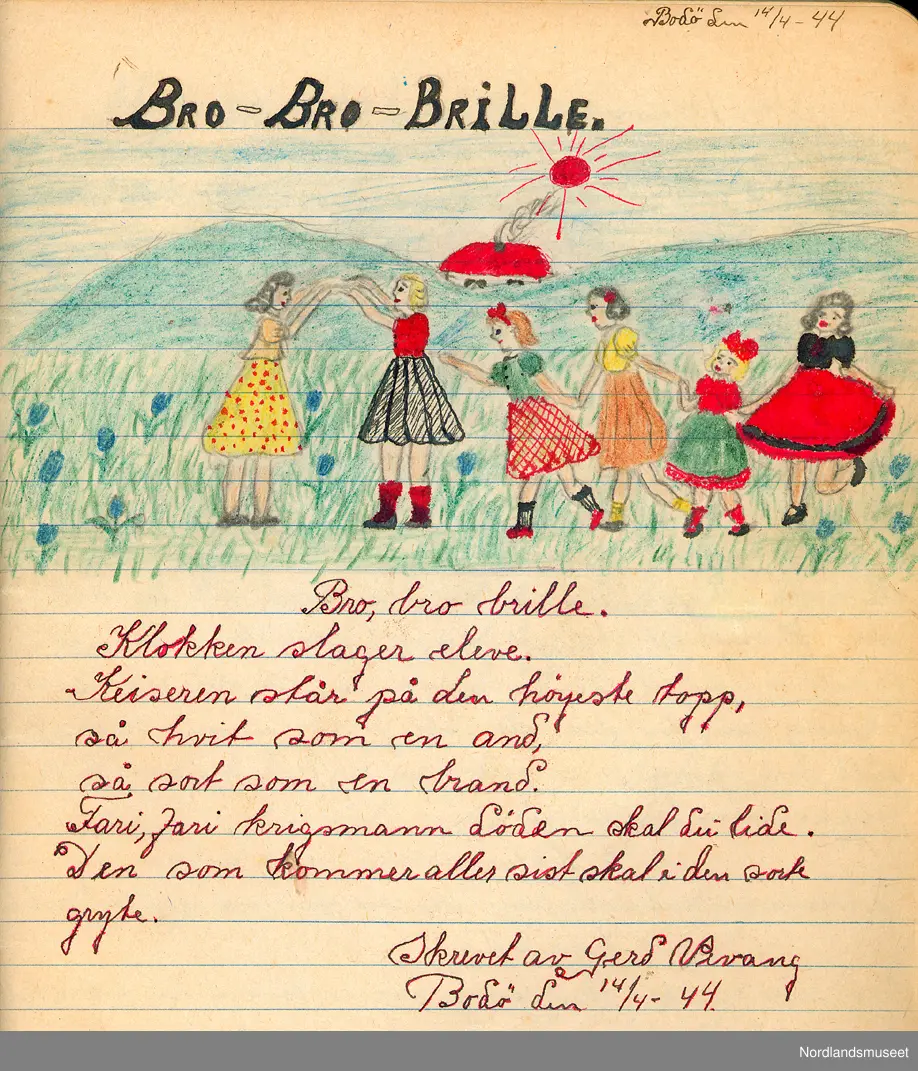 Bodö den 14/4 - 44
BRO - BRO - BRILLE.
Bro, bro brille.
Klokken slager eleve.
Keiseren står på den höyeste topp,
så hvit som en and,
så sort som en brand.
Fari, fari krigsmann döden skal du lide.
Den som kommer aller sist skal i den sorte
gryte.
Skrevet av Gerd
Bodö den 14/4 - 44.
Nordlandsmuseet